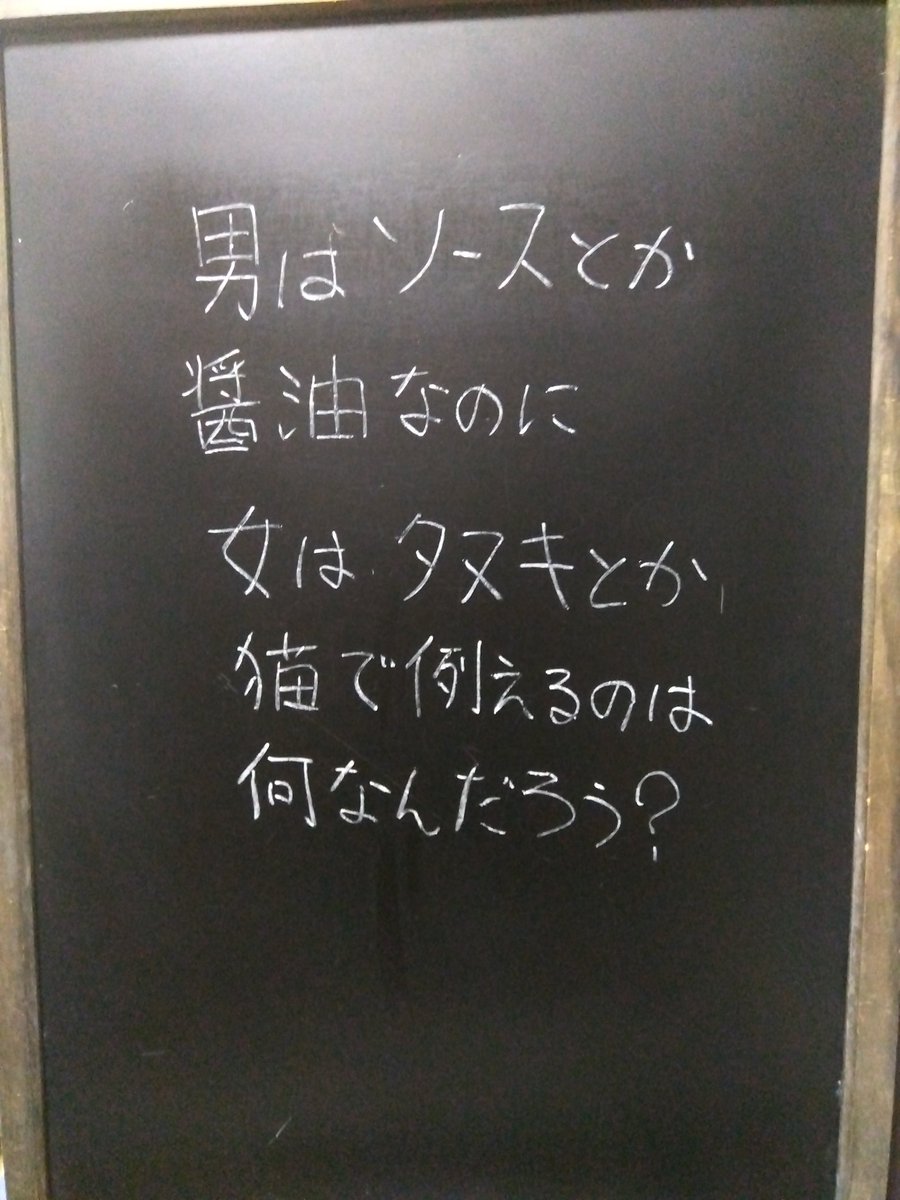 男はソースとか
醤油なのに
女はタヌキとか、
猫で例えるのは
何なんだろう?